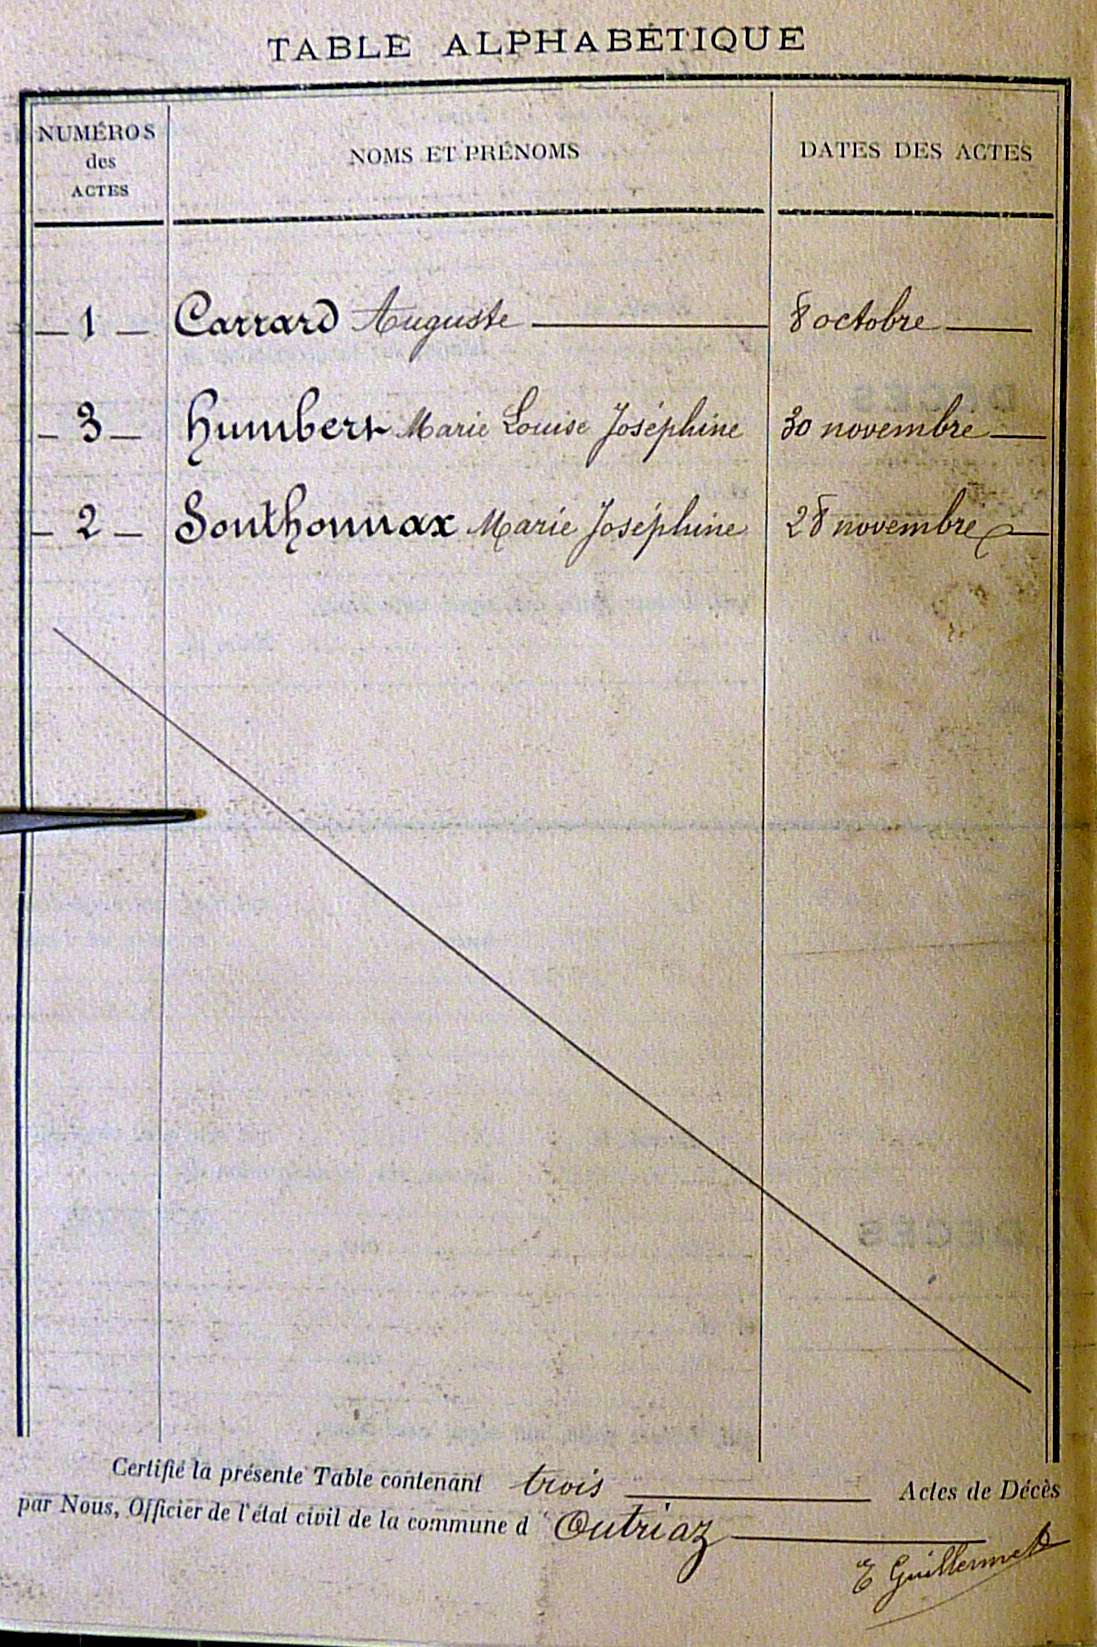 TABLE ALPHABÉTIQUE
NUMÉROS des ACTES NOMS ET PRÉNOMS DATES DES ACTES
1 Carrard Auguste 8 octobre
3 Humbert Marie Louise Joséphine 30 novembre
2 Sonthonnax Marie Joséphine 28 novembre
Certifié la présente Table contenant trois Actes de Décès
par Nous, Officier de l'état civil de la commune d'Outriaz
E Guillermet